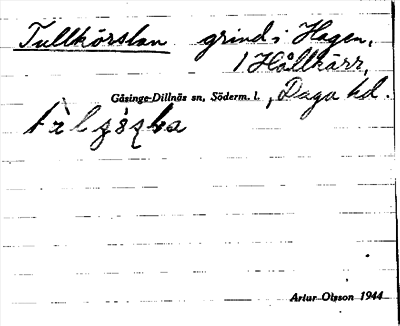 Tullkörslan grind i Hagen,
1 Hållkärr,
Gåsinge-Dillnäs sn, Söderm. l., Daga hd.
Artur Olsson 1944